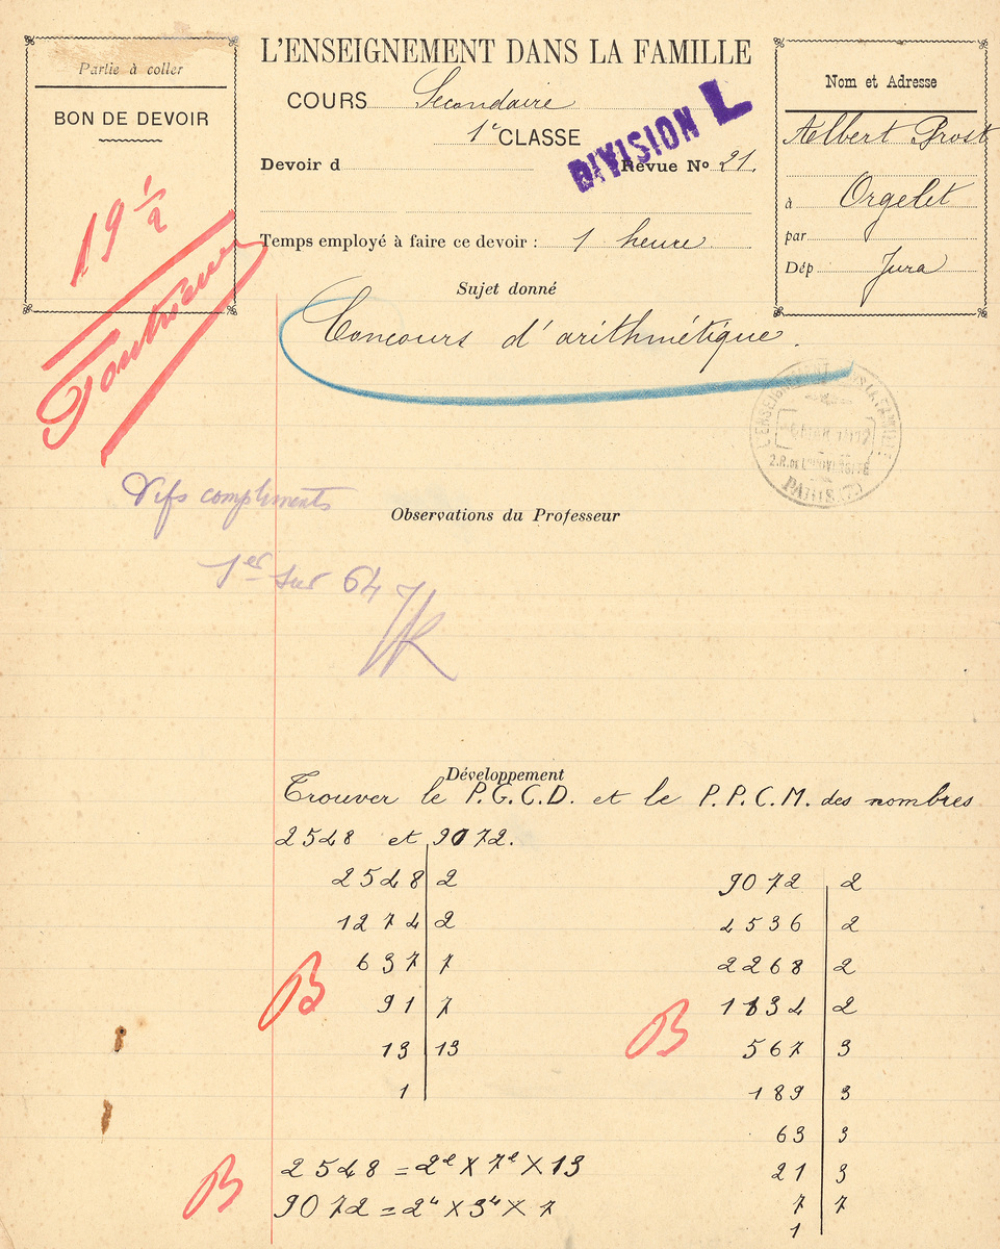 Partie à coller
BON DE DEVOIR
19 1/2
L'ENSEIGNEMENT DANS LA FAMILLE
COURS Secondaire
1e CLASSE
DIVISION L
Devoir d
Revue No 21.
Temps employé à faire ce devoir : 1 heure
Nom et Adresse
Albert Prost
à Orgelet
par
Dép Jura
Sujet donné
Concours d'arithmétique.
L'ENSEIGNEMENT DANS LA FAMILLE
2.R. de L'UNIVERSITÉ
PARIS (7.)
Vifs compliments
Observations du Professeur
1er sur 64
Développement
Trouver le P.G.C.D. et le P.P.C.M. des nombres
2548 et 9072.
2548 | 2
1274 | 2
637 | 7
91 | 7
13 | 13
1
B
9072 | 2
4536 | 2
2268 | 2
1134 | 2
567 | 3
189 | 3
63 | 3
21 | 3
7 | 7
1
B
B
2548 = 2² × 7² × 13
9072 = 2⁴ × 3⁴ × 7